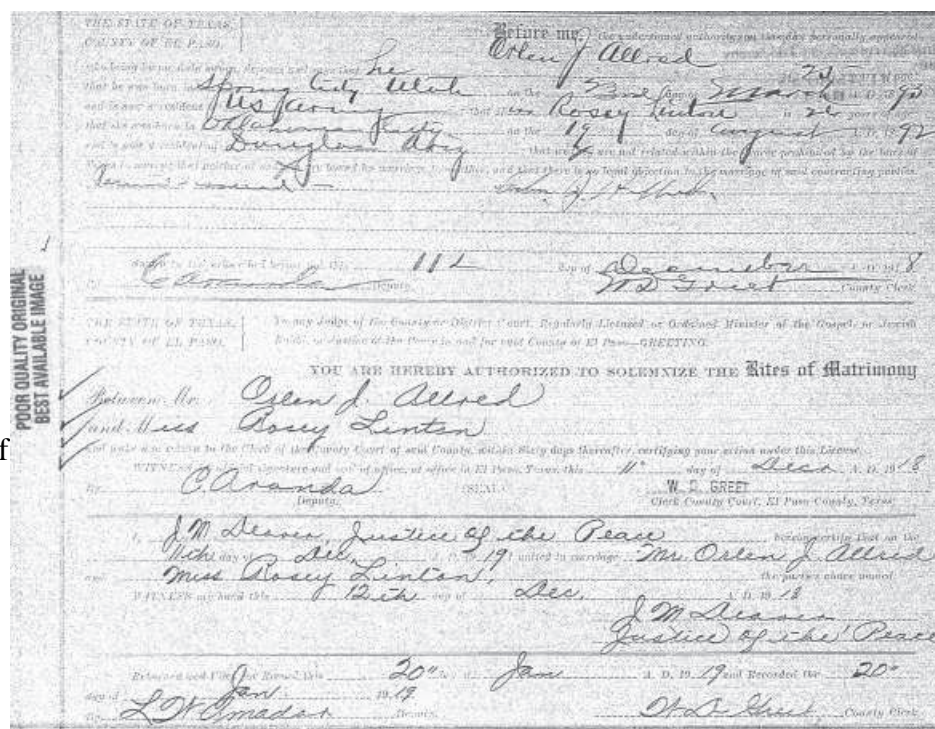 THE STATE OF TEXAS,
COUNTY OF EL PASO.
Before me, the undersigned authority on this day personally appeared
Orlen J Allred
who being by me duly sworn, deposes and says that he
that he was born in Spring City Utah on the 2nd day of March A. D. 1893
and is now a resident US Army that Miss Rosey Linton is 26 years of age
that she was born in Oklahoma City on the 19 day of August A. D. 1892
and is now a resident of Douglas Ariz that we are not related within the degree prohibited by the laws of
and that there is no legal objection to the marriage of said contracting parties.
day of December A. D. 1918
By C Aranda Deputy. W D Greet County Clerk
THE STATE OF TEXAS,
COUNTY OF EL PASO.
To any Judge of the County or District Court, Regularly Licensed or Ordained Minister of the Gospel, or Jewish
Rabbi, or Justice of the Peace in and for said County of El Paso—GREETING:
YOU ARE HEREBY AUTHORIZED TO SOLEMNIZE THE Rites of Matrimony
Between Mr. Orlen J. Allred
and Miss Rosey Linton
and make due return to the Clerk of the County Court of said County, within Sixty days thereafter, certifying your action under this License.
WITNESS my official signature and seal of office, at office in El Paso, Texas, this 11" day of Dec A. D. 1918
By C. Aranda (SEAL) W. D. GREET
Deputy. Clerk County Court, El Paso County, Texas.
I, J M Deaver, Justice of the Peace hereby certify that on the
11th day of Dec, A. D. 19 I united in marriage Mr. Orlen J. Allred
and Miss Rosey Linton, the parties above named
WITNESS my hand this 12th day of Dec. A. D. 1918
J M Deaver
Justice of the Peace
Returned and Filed for Record this 20" day of Jan A. D. 1919 and Recorded the 20"
day of Jan 1919
By L W Amador Deputy. W. D. Greet County Clerk
POOR QUALITY ORIGINAL
BEST AVAILABLE IMAGE
f